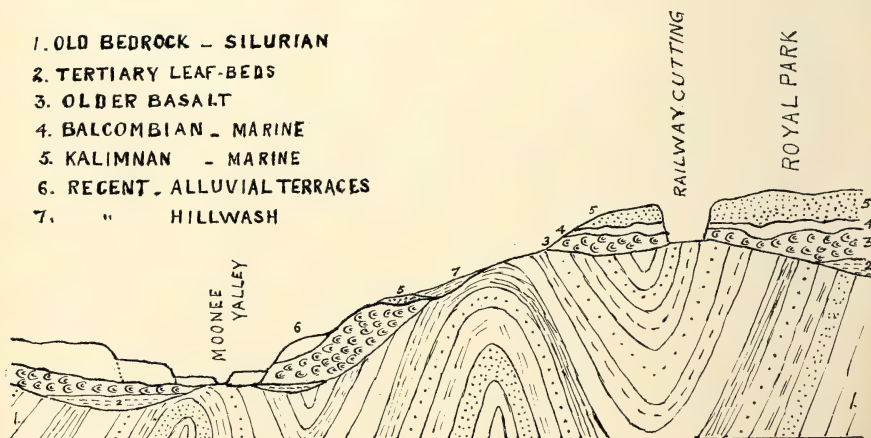 1. OLD BEDROCK - SILURIAN
2. TERTIARY LEAF-BEDS
3. OLDER BASALT
4. BALCOMBIAN - MARINE
5. KALIMNAN - MARINE
6. RECENT - ALLUVIAL TERRACES
7. " HILLWASH
MOONEE
VALLEY
RAILWAY CUTTING
ROYAL PARK
5
4
3
5
4
3
2
7
5
6
2
1.
1.